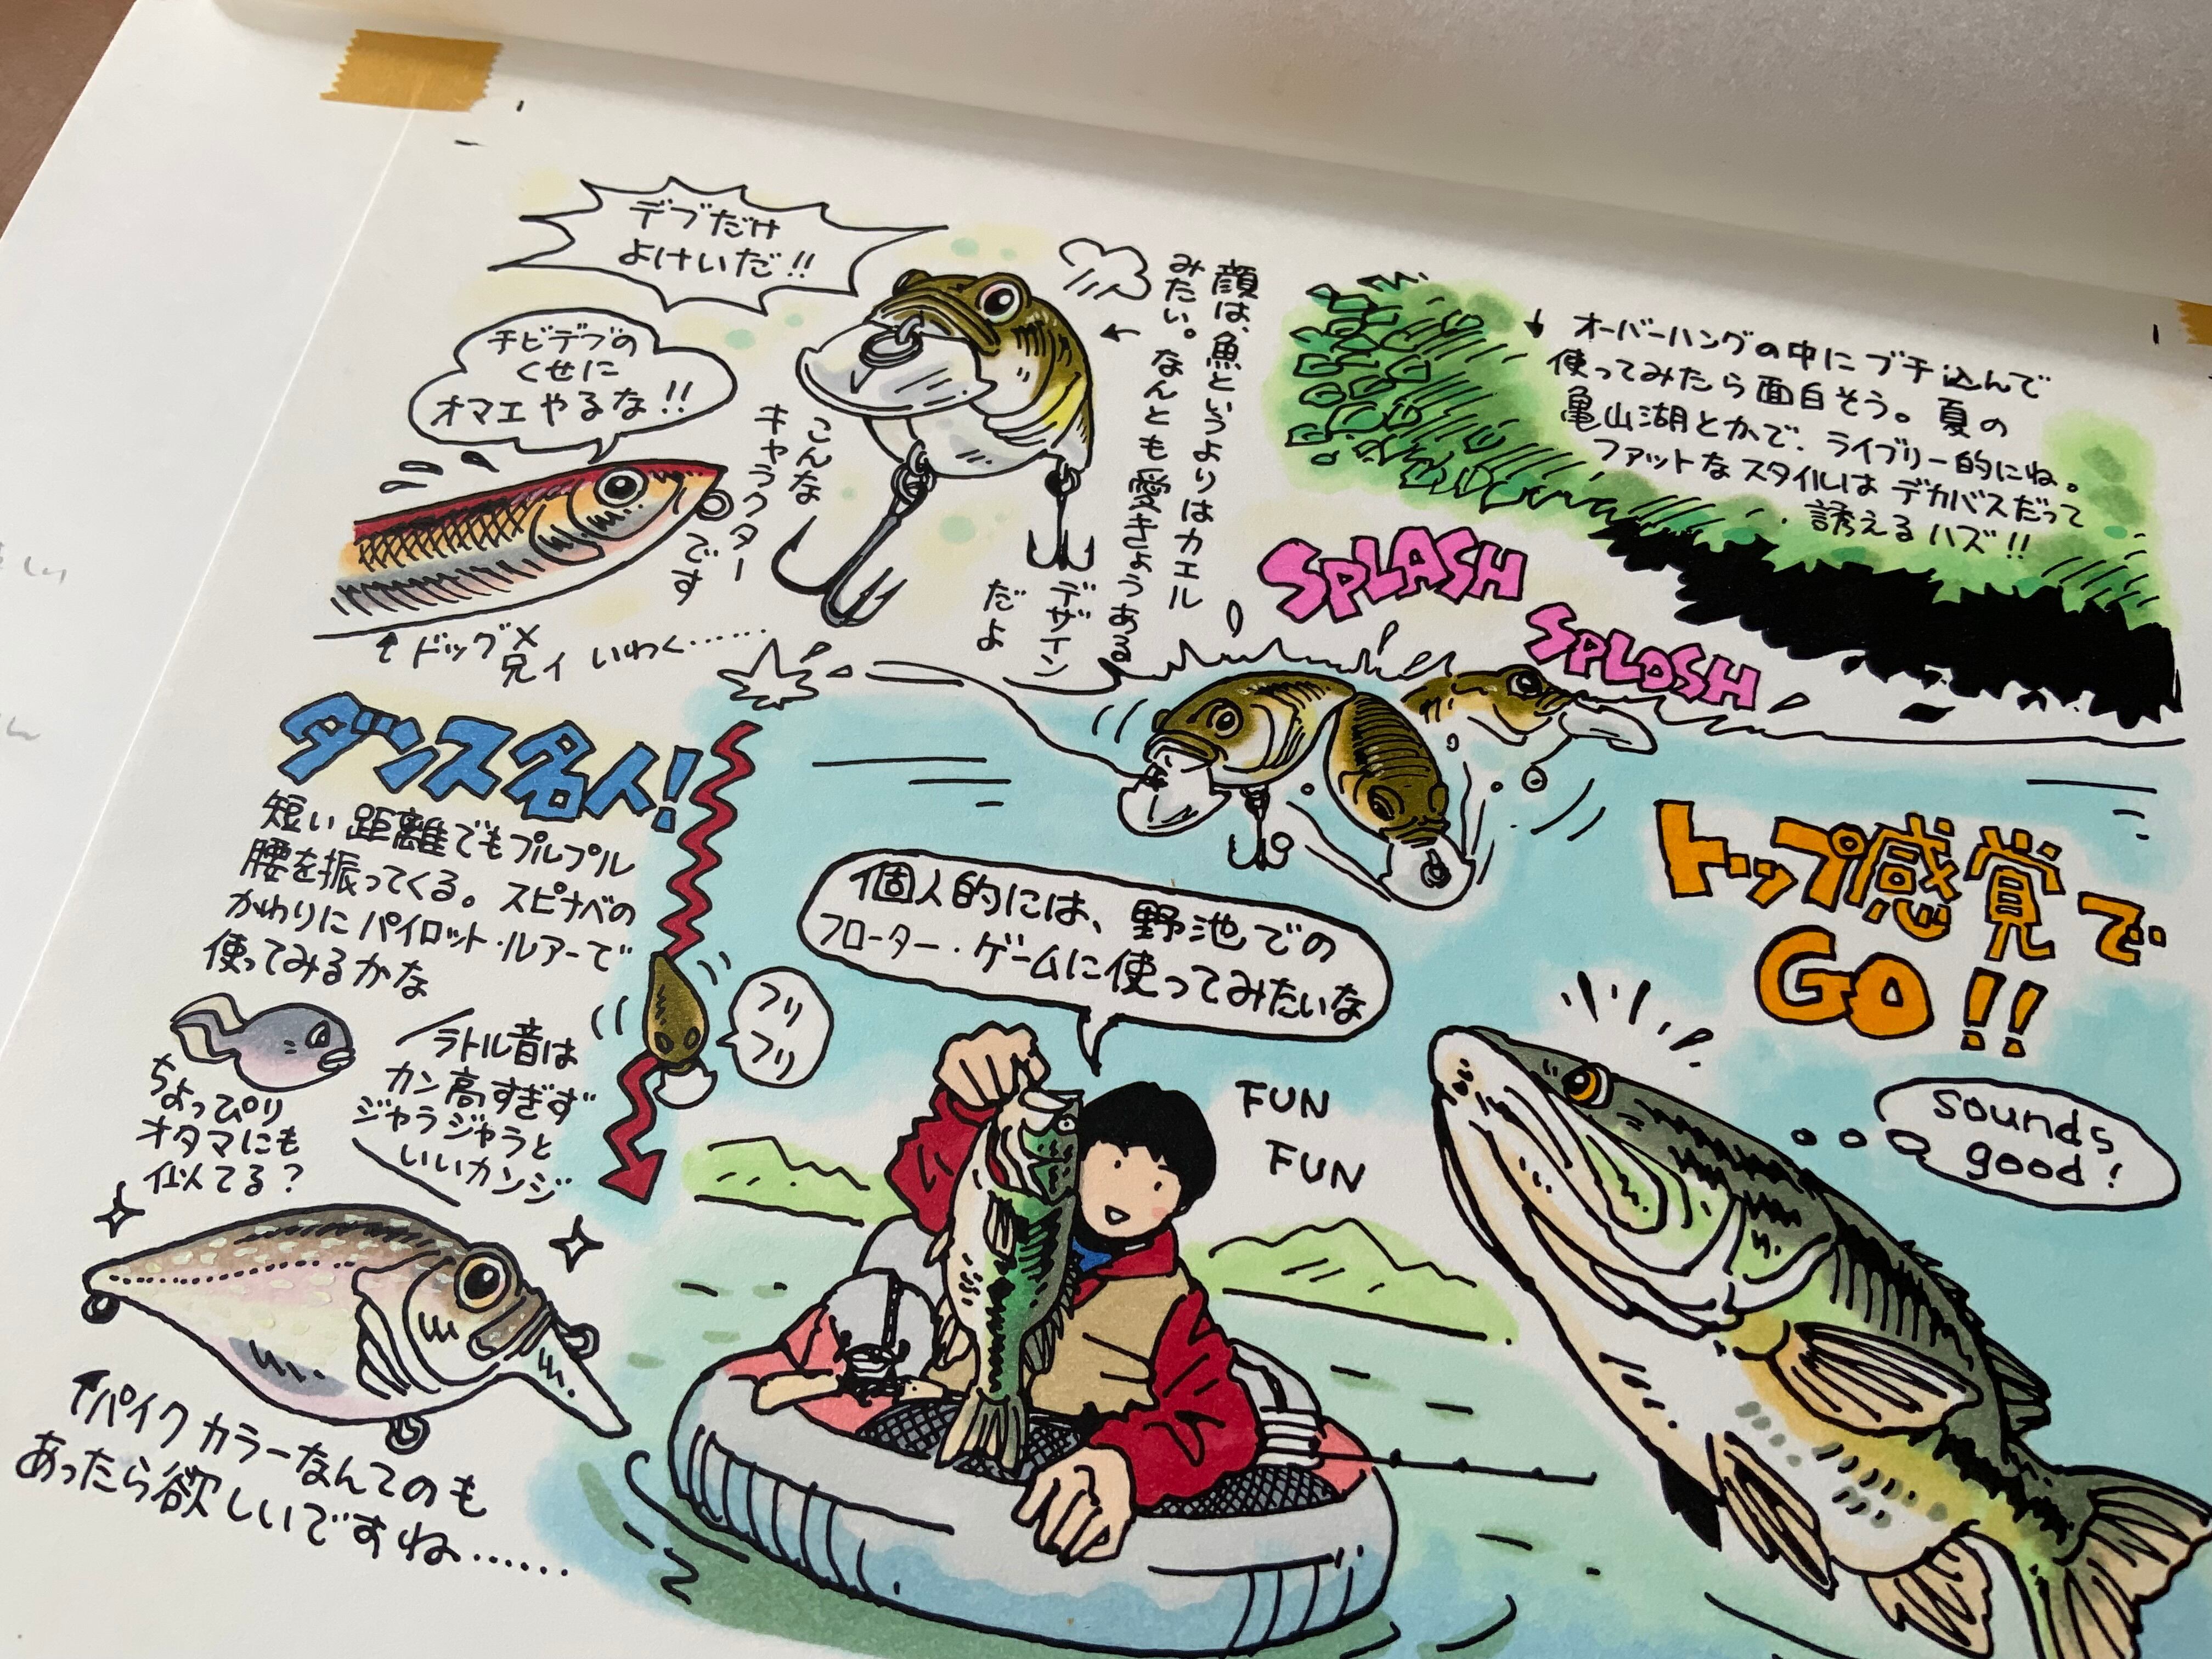 デブだけ
よけいだ!!
チビデブの
くせに
オマエやるな!!
こんな
キャラクター
です
↑ドッグX
兄ィいわく……
顔は、魚というよりはカエル
みたい。なんとも愛きょうある
デザイン
だよ
↓オーバーハングの中にブチ込んで
使ってみたら面白そう。夏の
亀山湖とかで、ライブリー的にね。
ファットなスタイルはデカバスだって
誘えるハズ!!
SPLASH
SPLOSH
ダンス名人!
短い距離でもプルプル
腰を振ってくる。スピナベの
かわりにパイロット・ルアーで
使ってみるかな
フリ
フリ
ちょっぴり
オタマにも
似てる?
ラトル音は
カン高すぎず
ジャラジャラと
いいカンジ
↑パイクカラーなんてのも
あったら欲しいですね……
個人的には、野池での
フローター・ゲームに使ってみたいな
FUN
FUN
トップ感覚で
GO!!
sounds
good!